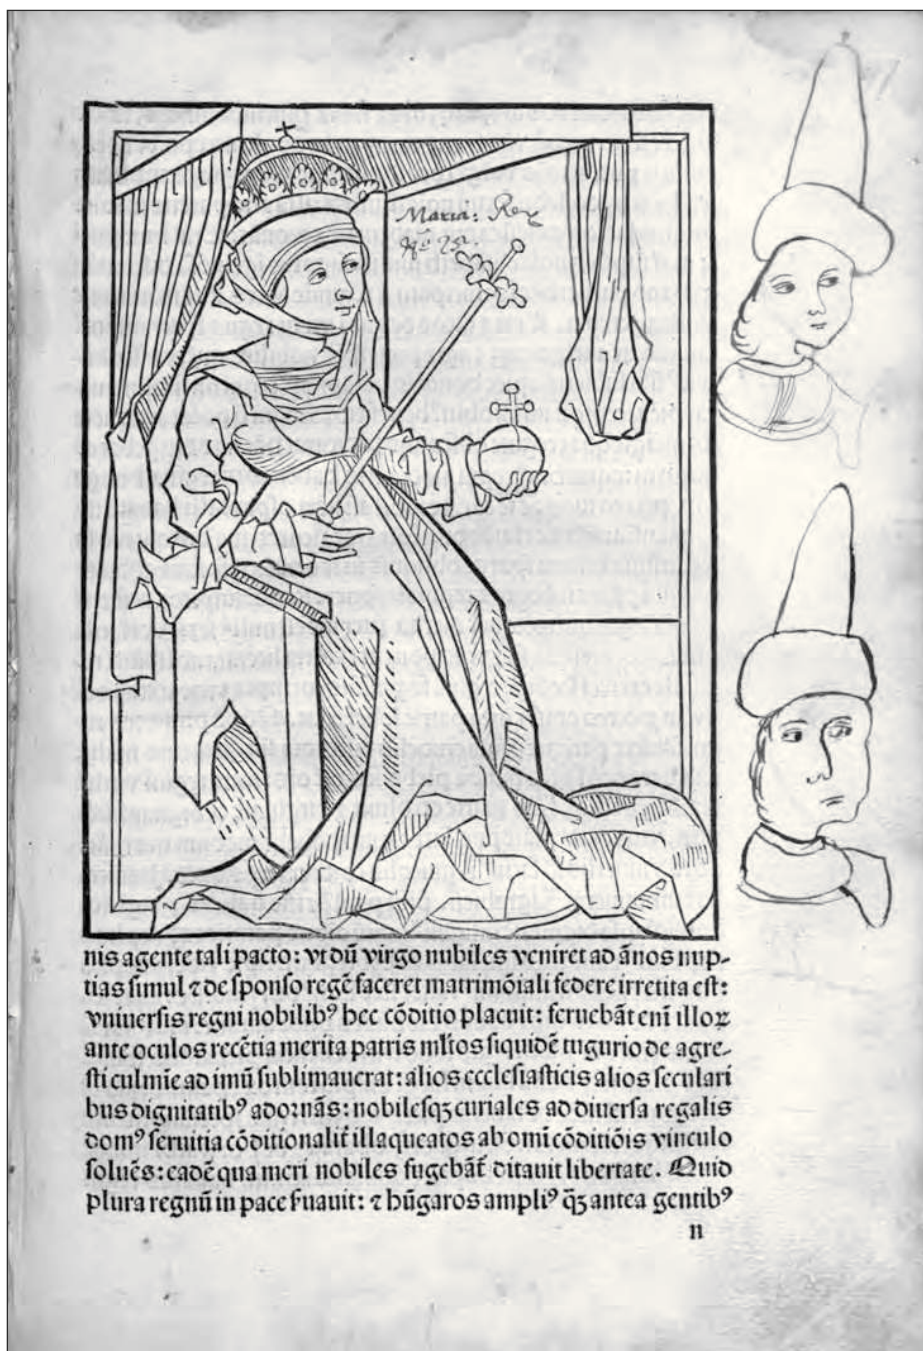 Maria: Rex
nis agente tali pacto: vt dū virgo nubiles veniret ad ānos nup-
tias simul ⁊ de sponso regē faceret matrimōiali federe irretita est:
vniuersis regni nobilib⁹ hec cōditio placuit: feruebāt eni illoꝝ
ante oculos recētia merita patris ml̄tos siquidē tugurio de agre-
sti culmīe ad imū sublimauerat: alios ecclesiasticis alios seculari
bus dignitatib⁹ adornās: nobilesqꝫ curiales ad diuersa regalis
dom⁹ seruitia cōditionalit̄ illaqueatos ab omī cōditiōis vinculo
soluēs: eadē qua meri nobiles fugebāt̄ ditauit libertate. Quid
plura regnū in pace ẜuauit: ⁊ hūgaros ampli⁹ qꝫ̄ antea gentib⁹
n